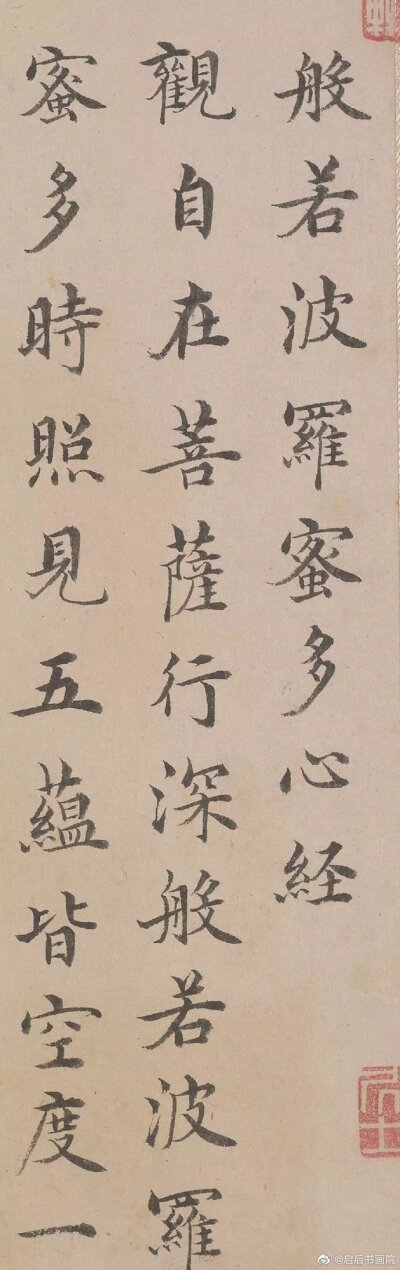 般若波羅蜜多心経
觀自在菩薩行深般若波羅
蜜多時照見五蘊皆空度一
@启后书画院